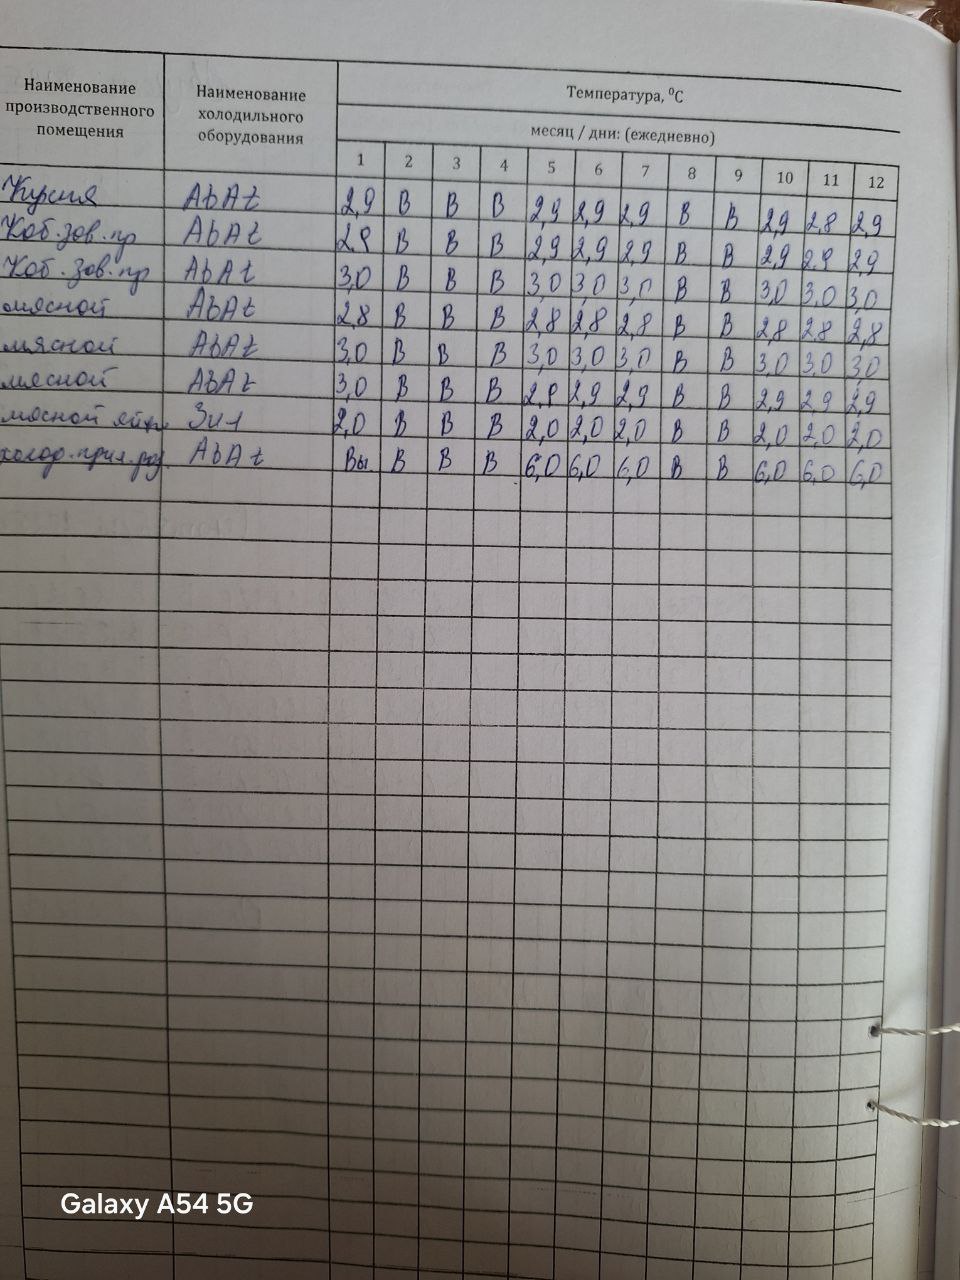 Наименование производственного помещения
Наименование холодильного оборудования
Температура, ⁰С
месяц / дни: (ежедневно)
1 2 3 4 5 6 7 8 9 10 11 12
Кухня AbAt 2,9 В В В 2,9 2,9 2,9 В В 2,9 2,8 2,9
Каб. зав. пр AbAt 2,9 В В В 2,9 2,9 2,9 В В 2,9 2,9 2,9
Каб. зав. пр AbAt 3,0 В В В 3,0 3,0 3,0 В В 3,0 3,0 3,0
мясной AbAt 2,8 В В В 2,8 2,8 2,8 В В 2,8 2,8 2,8
мясной AbAt 3,0 В В В 3,0 3,0 3,0 В В 3,0 3,0 3,0
мясной AbAt 3,0 В В В 2,9 2,9 2,9 В В 2,9 2,9 2,9
мясной Зил 2,0 В В В 2,0 2,0 2,0 В В 2,0 2,0 2,0
AbAt Вы В В В 6,0 6,0 6,0 В В 6,0 6,0 6,0
Galaxy A54 5G